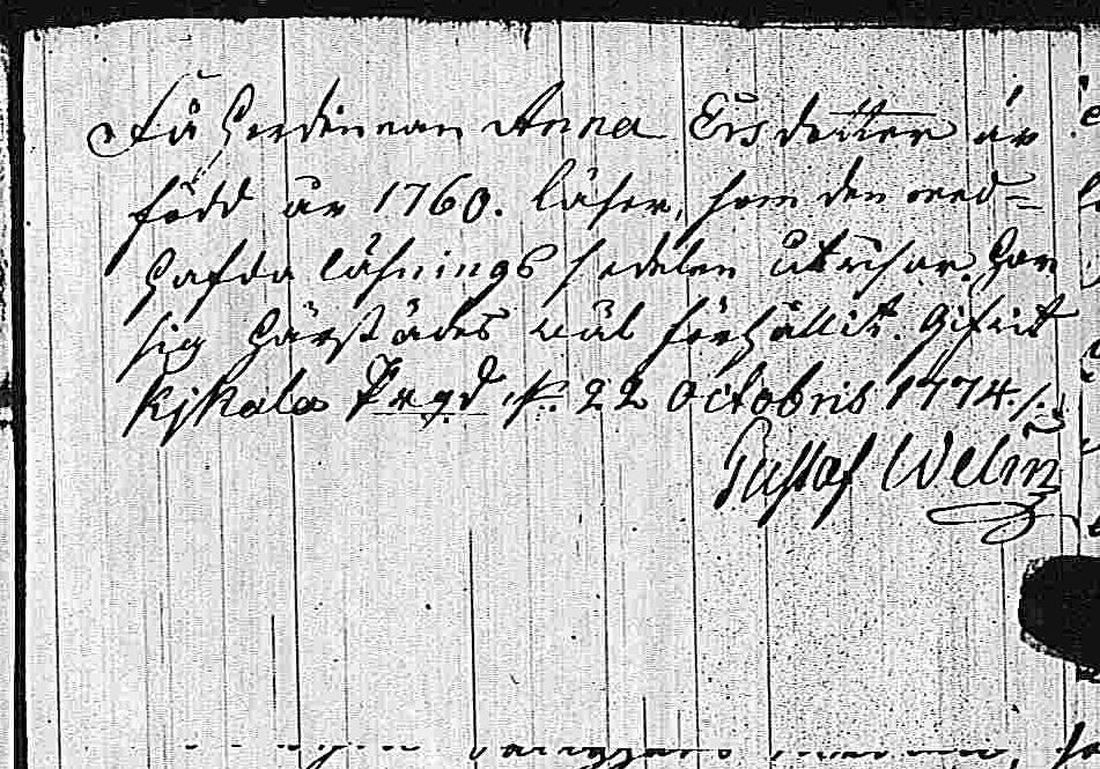 Få Herdinnan Anna Ersdotter är
född år 1760. läser, som den med=
hafda läsnings sedelen utvisar. Har
sig härstädes wäl förhållit. Gifvit
Kjkala Prgd. d. 22 Octobris 1774.
Gustaf Welin